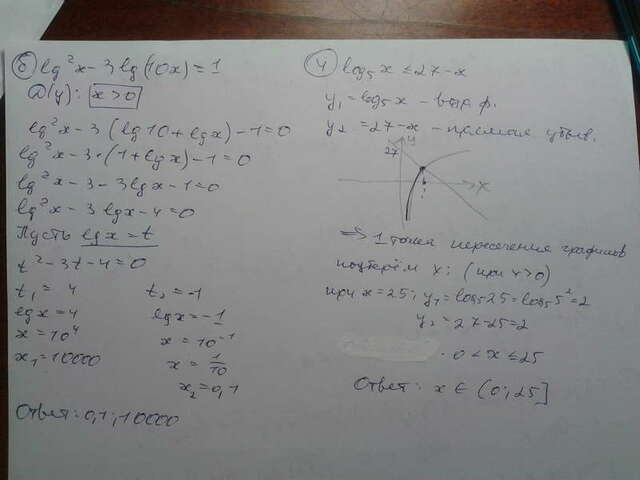 б) lg²x - 3lg(10x) = 1
D(y): x>0
lg²x - 3(lg10 + lgx) - 1 = 0
lg²x - 3·(1 + lgx) - 1 = 0
lg²x - 3 - 3lgx - 1 = 0
lg²x - 3lgx - 4 = 0
Пусть lgx = t
t² - 3t - 4 = 0
t₁ = 4 t₂ = -1
lgx = 4 lgx = -1
x = 10⁴ x = 10⁻¹
x₁ = 10000 x = 1/10
x₂ = 0,1
Ответ: 0,1; 10000
4) log₅x ≤ 27 - x
y₁ = log₅x - возр. ф.
y₂ = 27 - x - прямая убыв.
y
27
x
=> 1 точка пересечения графиков
подберём x: (при x>0)
при x = 25; y₁ = log₅25 = log₅5² = 2
y₂ = 27-25 = 2
0 < x ≤ 25
Ответ: x ∈ (0; 25]